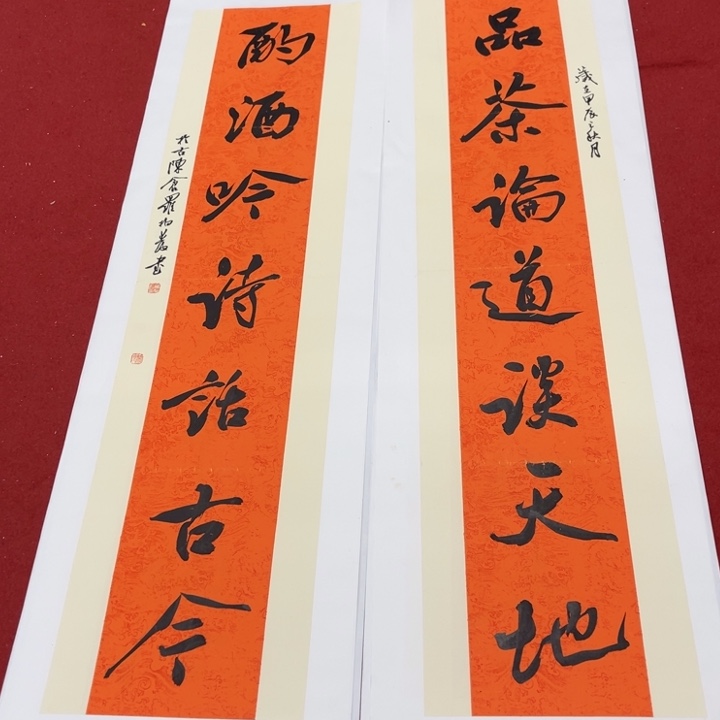 品茶論道談天地
歲在甲辰之秋月
酌酒吟詩話古今
於古陳倉羅
書